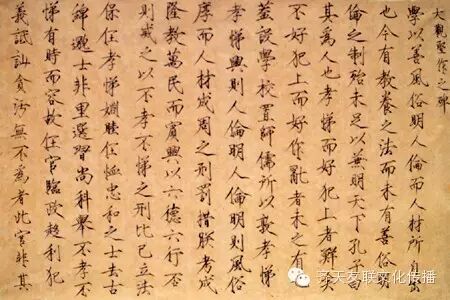 大觀聖作之碑
學以善風俗明人倫而人材所自出
也今有教養之法而未有善俗明
倫之制殆未足以兼明天下孔子曰
其為人也孝悌而好犯上者鮮矣
不好犯上而好作亂者未之有也
蓋設學校置師儒所以敦孝悌
孝悌興則人倫明人倫明則風俗
厚而人材成周之刑罰措朕考成
隆教萬民而賓興以六德六行否
則威之以不孝不悌之刑比已立法
保任孝悌婣睦任恤忠和之士去古
綿邈士非里選習尚科舉不孝不
悌有時而容故任官臨政趨利犯
義詆訕貪污無不為者此官非其
享天友联文化传播